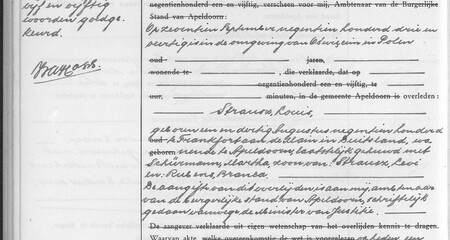 vijf en vijftig
woorden goedge-
keurd.
negentienhonderd een en vijftig, verscheen voor mij, Ambtenaar van de Burgerlijke
Stand van Apeldoorn:
Op zeventien September negentien honderd drie en
veertig is in de omgeving van Oswiecim in Polen
oud jaren,
wonende te , die verklaarde, dat op
negentienhonderd een en vijftig, te
uur, minuten, in de gemeente Apeldoorn is overleden:
Strausz, Louis,
geboren een en dertig Augustus negentien honderd
oud te Frankfort aan de Main in Duitsland, wo-
geboren nende te Apeldoorn, laatstelijk gehuwd met
Schürmann, Martha, zoon van: Strausz, Levi
en: Rubens, Branca.
De aangifte van dit overlijden is aan mij, ambtenaar
van de burgerlijke stand van Apeldoorn, schriftelijk
gedaan vanwege de Minister van Justitie.
De aangever verklaarde uit eigen wetenschap van het overlijden kennis te dragen.
Waarvan akte, welke overeenkomstig de wet is voorgelezen op heden een